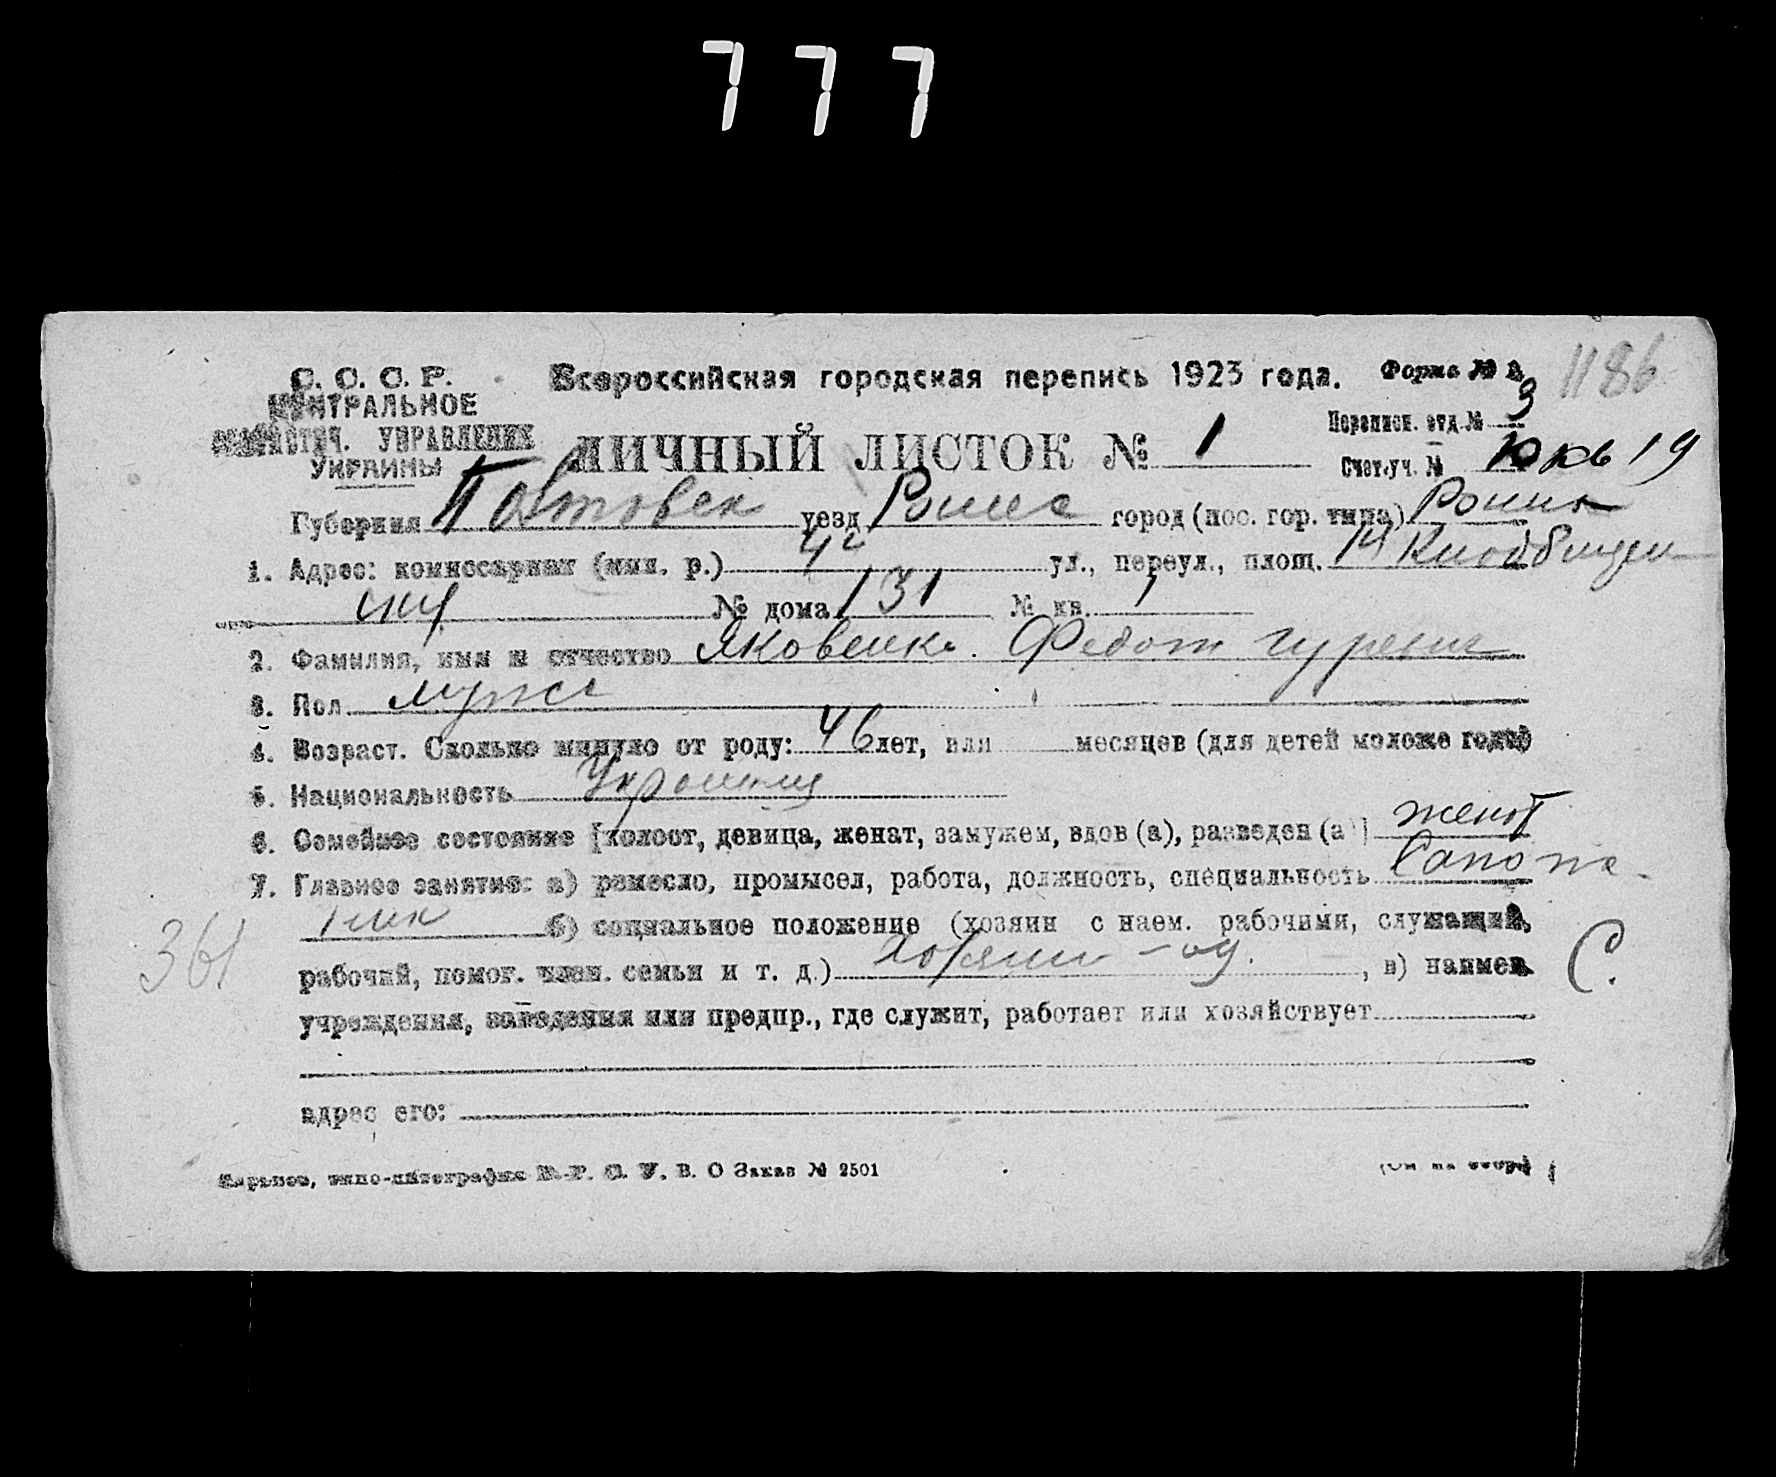 777
С. С. С. Р.
ЦЕНТРАЛЬНОЕ
СТАТИСТИЧ. УПРАВЛЕНИЕ
УКРАИНЫ
Всероссийская городская перепись 1923 года.
Форма № 2
1186
Переписн. отд. № 3
ЛИЧНЫЙ ЛИСТОК № 1
Счет. уч. № кв 19
Губерния уезд город (пос. гор. типа)
1. Адрес: комиссариат (мил. р.) ул., переул., площ.
№ дома 131 № кв. 1
2. Фамилия, имя и отчество Яковенко Федот Гурович
3. Пол мужс
4. Возраст. Сколько минуло от роду: 46 лет, или месяцев (для детей моложе года)
5. Национальность
6. Семейное состояние [холост, девица, женат, замужем, вдов (а), разведен (а)] женат
7. Главное занятие: а) ремесло, промысел, работа, должность, специальность Сапож-
ник б) социальное положение (хозяин с наем. рабочими, служащий,
361
рабочий, помог. член. семьи и т. д.) хозяин - од. , в) наимен.
С.
учреждения, заведения или предпр., где служит, работает или хозяйствует
адрес его:
Харьков, типо-литография Заказ № 2501